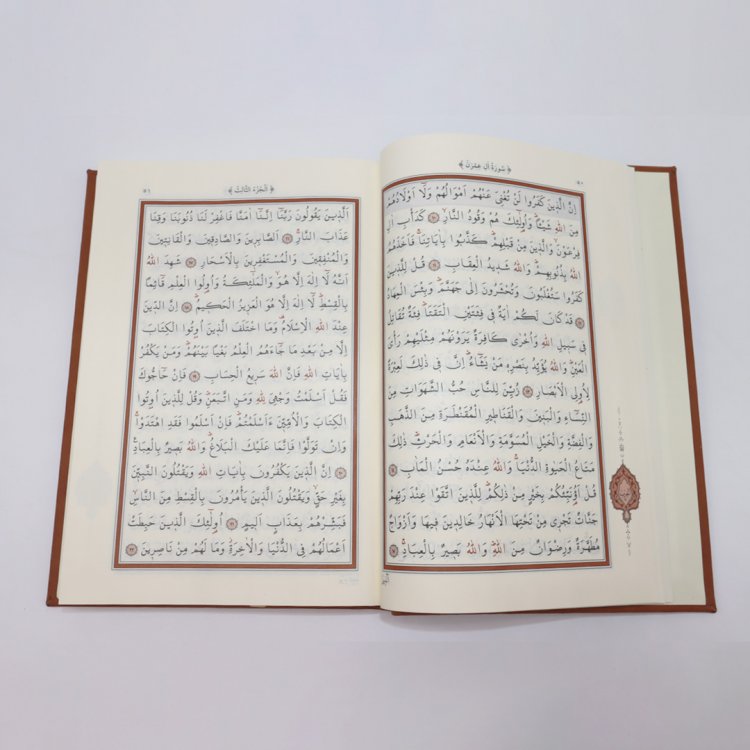 سُورَةُ اٰلِ عِمْرٰنَ
٥٠
اِنَّ الَّذ۪ينَ كَفَرُوا لَنْ تُغْنِيَ عَنْهُمْ اَمْوَالُهُمْ وَلَٓا اَوْلَادُهُمْ
مِنَ اللّٰهِ شَيْـًٔاۜ وَاُو۬لٰٓئِكَ هُمْ وَقُودُ النَّارِۙ ﴿١٠﴾ كَدَأْبِ اٰلِ
فِرْعَوْنَۙ وَالَّذ۪ينَ مِنْ قَبْلِهِمْۜ كَذَّبُوا بِاٰيَاتِنَاۚ فَاَخَذَهُمُ
اللّٰهُ بِذُنُوبِهِمْۜ وَاللّٰهُ شَد۪يدُ الْعِقَابِ ﴿١١﴾ قُلْ لِلَّذ۪ينَ
كَفَرُوا سَتُغْلَبُونَ وَتُحْشَرُونَ اِلٰى جَهَنَّمَۜ وَبِئْسَ الْمِهَادُ
﴿١٢﴾ قَدْ كَانَ لَكُمْ اٰيَةٌ ف۪ي فِئَتَيْنِ الْتَقَتَاۜ فِئَةٌ تُقَاتِلُ
ف۪ي سَب۪يلِ اللّٰهِ وَاُخْرٰى كَافِرَةٌ يَرَوْنَهُمْ مِثْلَيْهِمْ رَأْيَ
الْعَيْنِۜ وَاللّٰهُ يُؤَيِّدُ بِنَصْرِه۪ مَنْ يَشَٓاءُۜ اِنَّ ف۪ي ذٰلِكَ لَعِبْرَةً
لِاُو۬لِي الْاَبْصَارِ ﴿١٣﴾ زُيِّنَ لِلنَّاسِ حُبُّ الشَّهَوَاتِ مِنَ
النِّسَٓاءِ وَالْبَن۪ينَ وَالْقَنَاط۪يرِ الْمُقَنْطَرَةِ مِنَ الذَّهَبِ
وَالْفِضَّةِ وَالْخَيْلِ الْمُسَوَّمَةِ وَالْاَنْعَامِ وَالْحَرْثِۜ ذٰلِكَ
مَتَاعُ الْحَيٰوةِ الدُّنْيَاۚ وَاللّٰهُ عِنْدَهُ حُسْنُ الْمَاٰبِ ﴿١٤﴾
قُلْ اَؤُ۬نَبِّئُكُمْ بِخَيْرٍ مِنْ ذٰلِكُمْۜ لِلَّذ۪ينَ اتَّقَوْا عِنْدَ رَبِّهِمْ
جَنَّاتٌ تَجْر۪ي مِنْ تَحْتِهَا الْاَنْهَارُ خَالِد۪ينَ ف۪يهَا وَاَزْوَاجٌ
مُطَهَّرَةٌ وَرِضْوَانٌ مِنَ اللّٰهِۜ وَاللّٰهُ بَص۪يرٌ بِالْعِبَادِۚ ﴿١٥﴾
اَلْجُزْءُ الثَّالِثُ
٥١
اَلَّذ۪ينَ يَقُولُونَ رَبَّنَٓا اِنَّنَٓا اٰمَنَّا فَاغْفِرْ لَنَا ذُنُوبَنَا وَقِنَا
عَذَابَ النَّارِۚ ﴿١٦﴾ اَلصَّابِر۪ينَ وَالصَّادِق۪ينَ وَالْقَانِت۪ينَ
وَالْمُنْفِق۪ينَ وَالْمُسْتَغْفِر۪ينَ بِالْاَسْحَارِ ﴿١٧﴾ شَهِدَ اللّٰهُ
اَنَّهُ لَٓا اِلٰهَ اِلَّا هُوَۙ وَالْمَلٰٓئِكَةُ وَاُو۬لُوا الْعِلْمِ قَٓائِمًا
بِالْقِسْطِۜ لَٓا اِلٰهَ اِلَّا هُوَ الْعَز۪يزُ الْحَك۪يمُۜ ﴿١٨﴾ اِنَّ الدّ۪ينَ
عِنْدَ اللّٰهِ الْاِسْلَامُ۠ وَمَا اخْتَلَفَ الَّذ۪ينَ اُو۫تُوا الْكِتَابَ
اِلَّا مِنْ بَعْدِ مَا جَٓاءَهُمُ الْعِلْمُ بَغْيًا بَيْنَهُمْۜ وَمَنْ يَكْفُرْ
بِاٰيَاتِ اللّٰهِ فَاِنَّ اللّٰهَ سَر۪يعُ الْحِسَابِ ﴿١٩﴾ فَاِنْ حَٓاجُّوكَ
فَقُلْ اَسْلَمْتُ وَجْهِيَ لِلّٰهِ وَمَنِ اتَّبَعَنِۜ وَقُلْ لِلَّذ۪ينَ اُو۫تُوا
الْكِتَابَ وَالْاُمِّيّ۪نَ ءَاَسْلَمْتُمْۜ فَاِنْ اَسْلَمُوا فَقَدِ اهْتَدَوْاۚ
وَاِنْ تَوَلَّوْا فَاِنَّمَا عَلَيْكَ الْبَلَاغُۜ وَاللّٰهُ بَص۪يرٌ بِالْعِبَادِ۟
﴿٢٠﴾ اِنَّ الَّذ۪ينَ يَكْفُرُونَ بِاٰيَاتِ اللّٰهِ وَيَقْتُلُونَ النَّبِيّ۪نَ
بِغَيْرِ حَقٍّۙ وَيَقْتُلُونَ الَّذ۪ينَ يَأْمُرُونَ بِالْقِسْطِ مِنَ النَّاسِۙ
فَبَشِّرْهُمْ بِعَذَابٍ اَل۪يمٍ ﴿٢١﴾ اُو۬لٰٓئِكَ الَّذ۪ينَ حَبِطَتْ
اَعْمَالُهُمْ فِي الدُّنْيَا وَالْاٰخِرَةِۘ وَمَا لَهُمْ مِنْ نَاصِر۪ينَ ﴿٢٢﴾